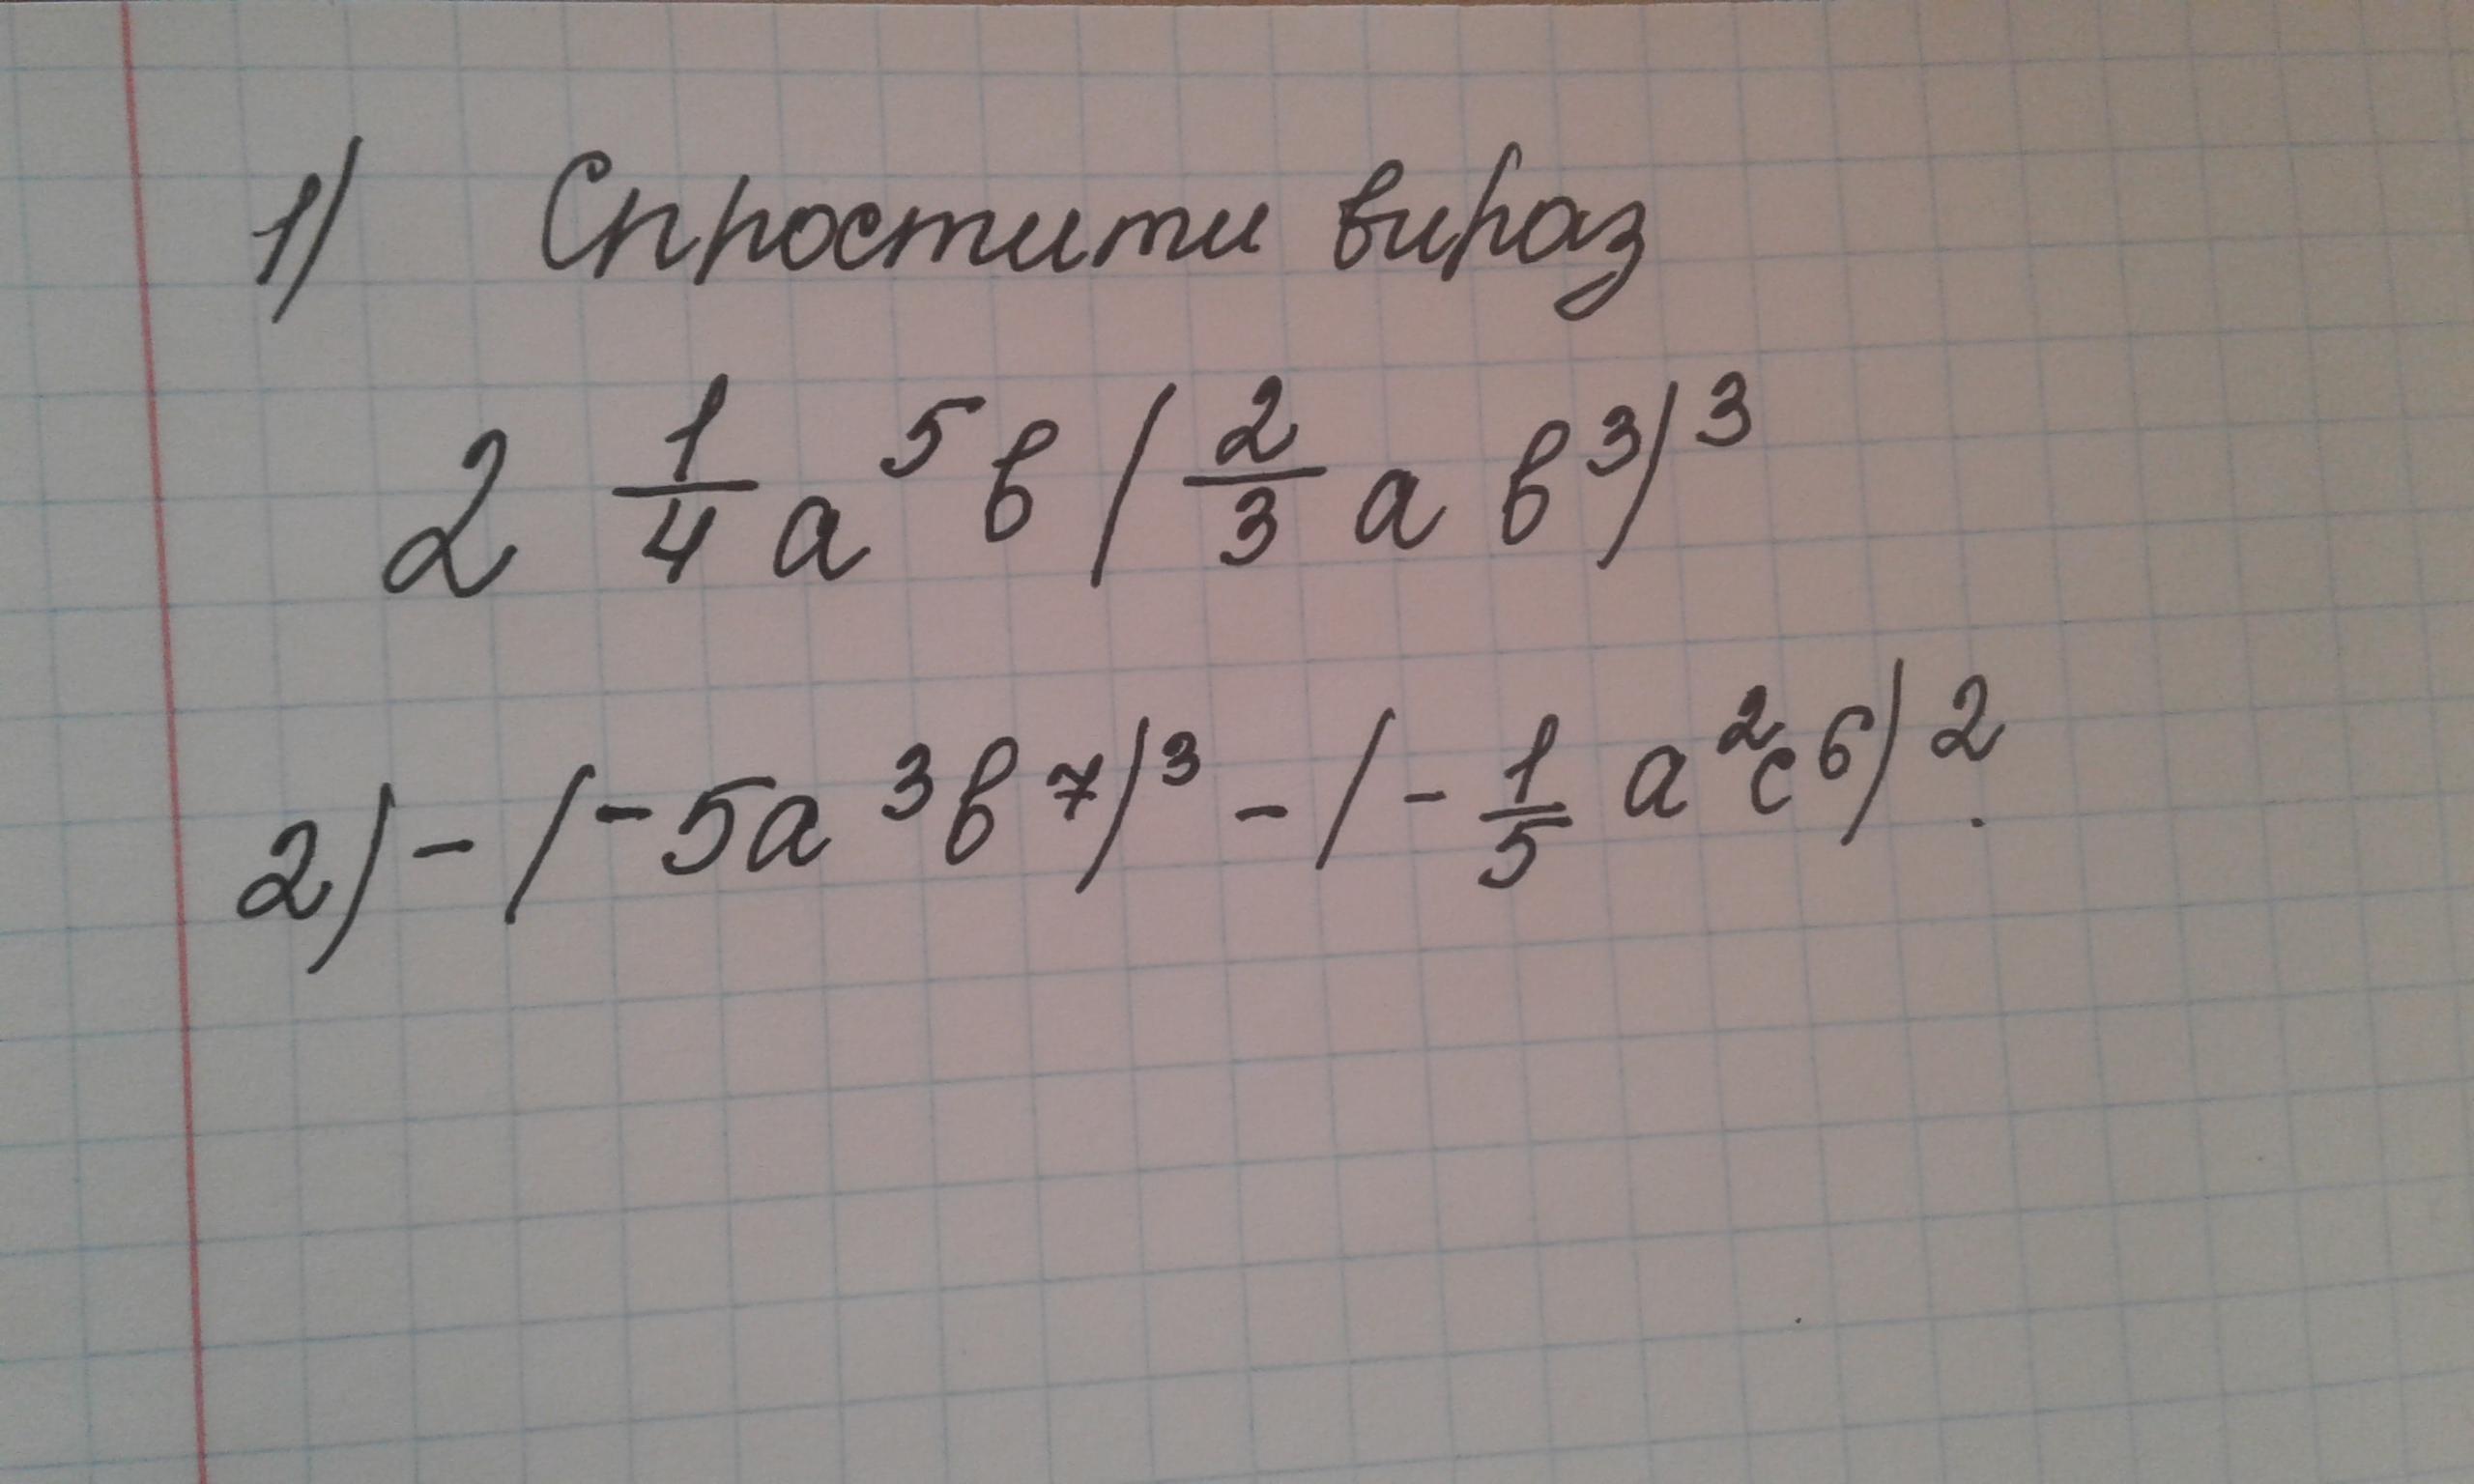 1) Спростити вираз
2 1/4 a⁵b (2/3 a b³)³
2) - (-5a³b⁷)³ - (-1/5 a²c⁶)².